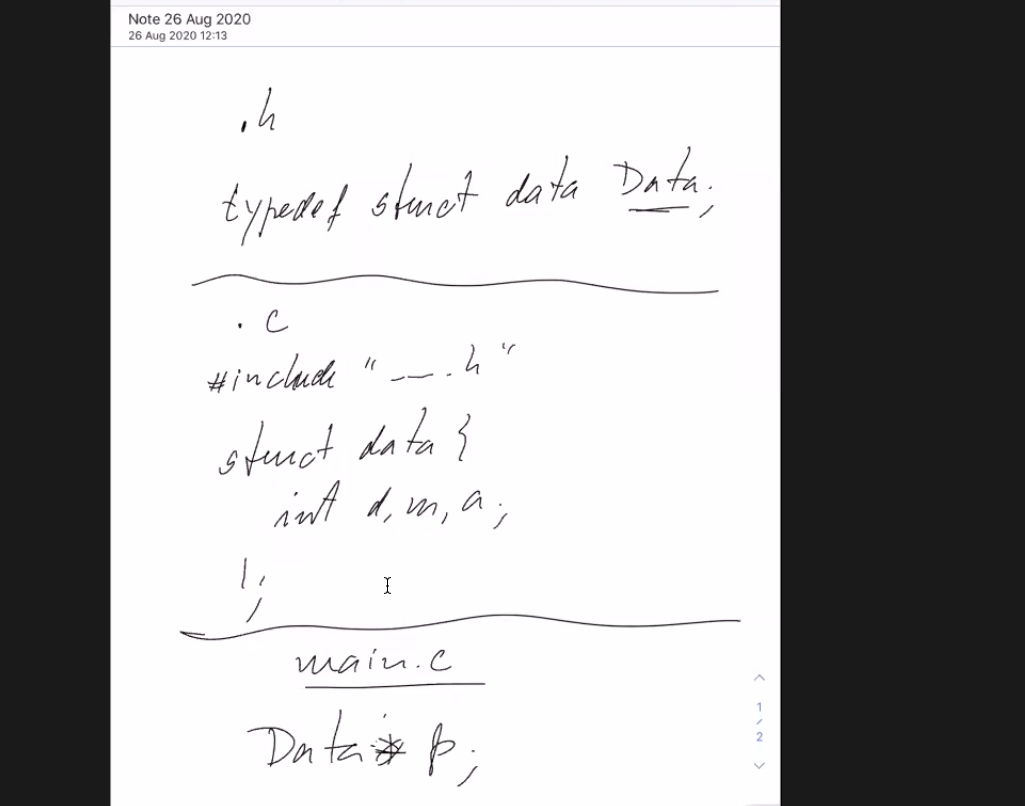 Note 26 Aug 2020
26 Aug 2020 12:13
.h
typedef struct data Data;
.c
#include "__.h"
struct data {
int d, m, a;
};
main.c
Data * p;
1
/
2